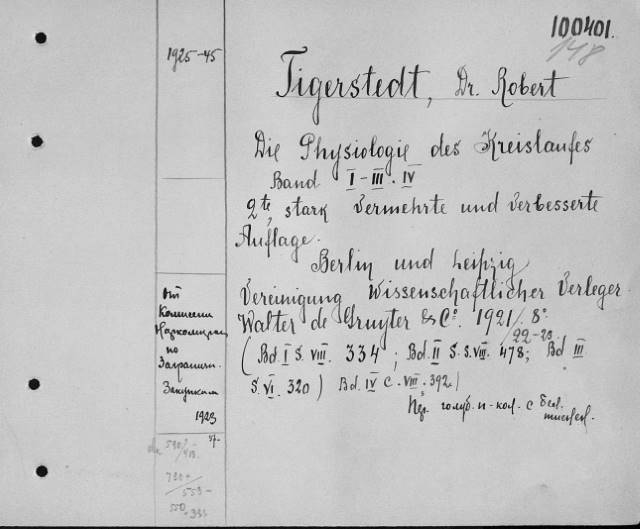 100401.
148
1925-45
Tigerstedt, Dr. Robert
Die Physiologie des Kreislaufes
Band I-III. IV
2te, stark Vermehrte und Verbesserte
Auflage.
Berlin und Leipzig
Vereinigung Wissenschaftlicher Verleger
Walter de Gruyter & Co. 1921/ 8°.
22-23
(Bd. I S. VIII. 334; Bd. II S. S. VIII. 478; Bd III
S. VI. 320) Bd. IV С. VIII. 392)
Пер. голуб. п-кол. с
От
Комиссии
по
Заграничн.
Закупкам
1923